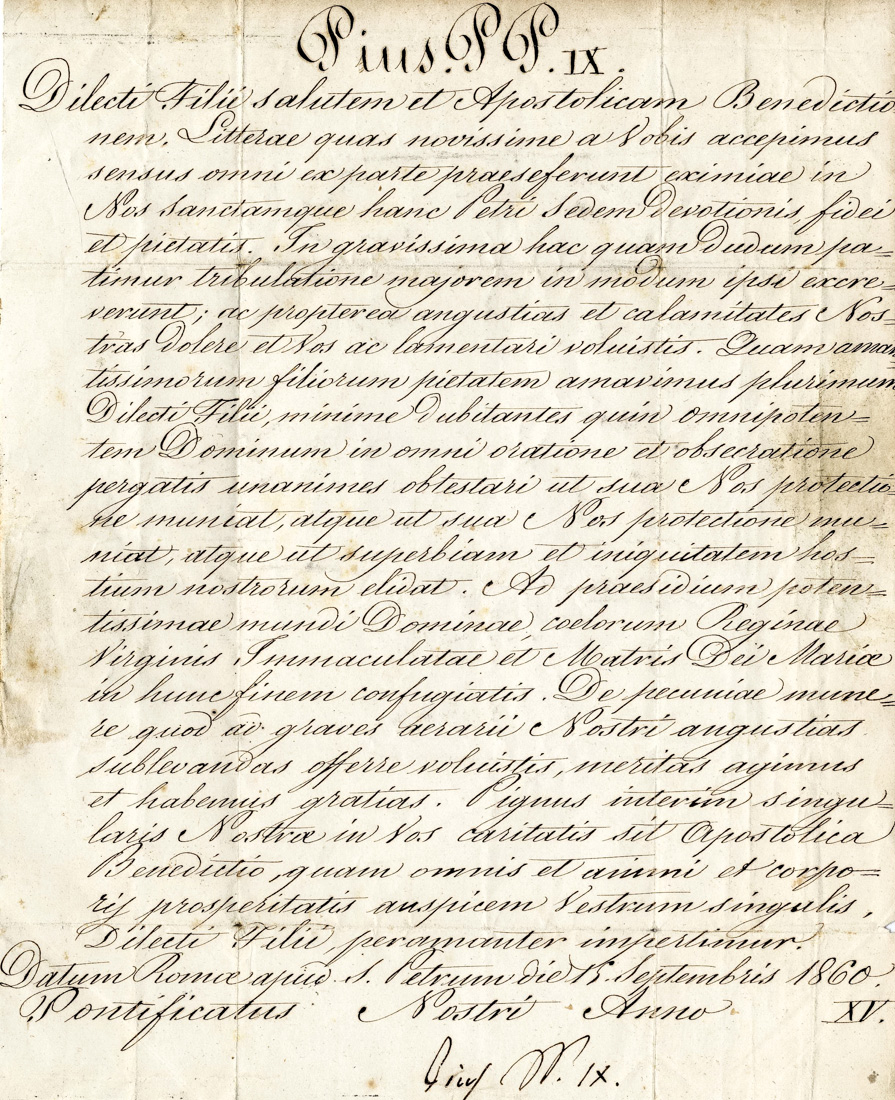 Pius. PP. IX.
Dilecti Filii salutem et Apostolicam Benedictio
nem. Litterae quas novissime a Vobis accepimus
sensus omni ex parte praeseferunt eximiae in
Nos Sanctamque hanc Petri Sedem devotionis, fidei
et pietatis. In gravissima hac quam dudum pa=
timur tribulatione majorem in modum ipsi excre=
verunt; ac propterea angustias et calamitates Nos=
tras dolere et Vos ac lamentari voluistis. Quam aman
tissimorum filiorum pietatem amavimus plurimum
Dilecti Filii, minime dubitantes quin omnipoten=
tem Dominum in omni oratione et obsecratione
pergatis unanimes obtestari ut sua Nos protectio
ne muniat, atque ut sua Nos protectione mu=
niat, atque ut superbiam et iniquitatem hos=
tium nostrorum elidat. Ad praesidium poten=
tissimae mundi Dominae, coelorum Reginae
Virginis Immaculatae et Matris Dei Mariæ
in hunc finem confugiatis. De pecuniae mune=
re quod ad graves aerarii Nostri angustias
sublevandas offerre voluistis, meritas agimus
et habemus gratias. Pignus interim singu=
laris Nostræ in Vos caritatis sit Apostolica
Benedictio, quam omnis et animi et corpo=
ris prosperitatis auspicem Vestrum singulis,
Dilecti Filii peramanter impertimur.
Datum Romæ apud S. Petrum die 15. Septembris 1860.
Pontificatus Nostri Anno XV.
Pius PP. IX.